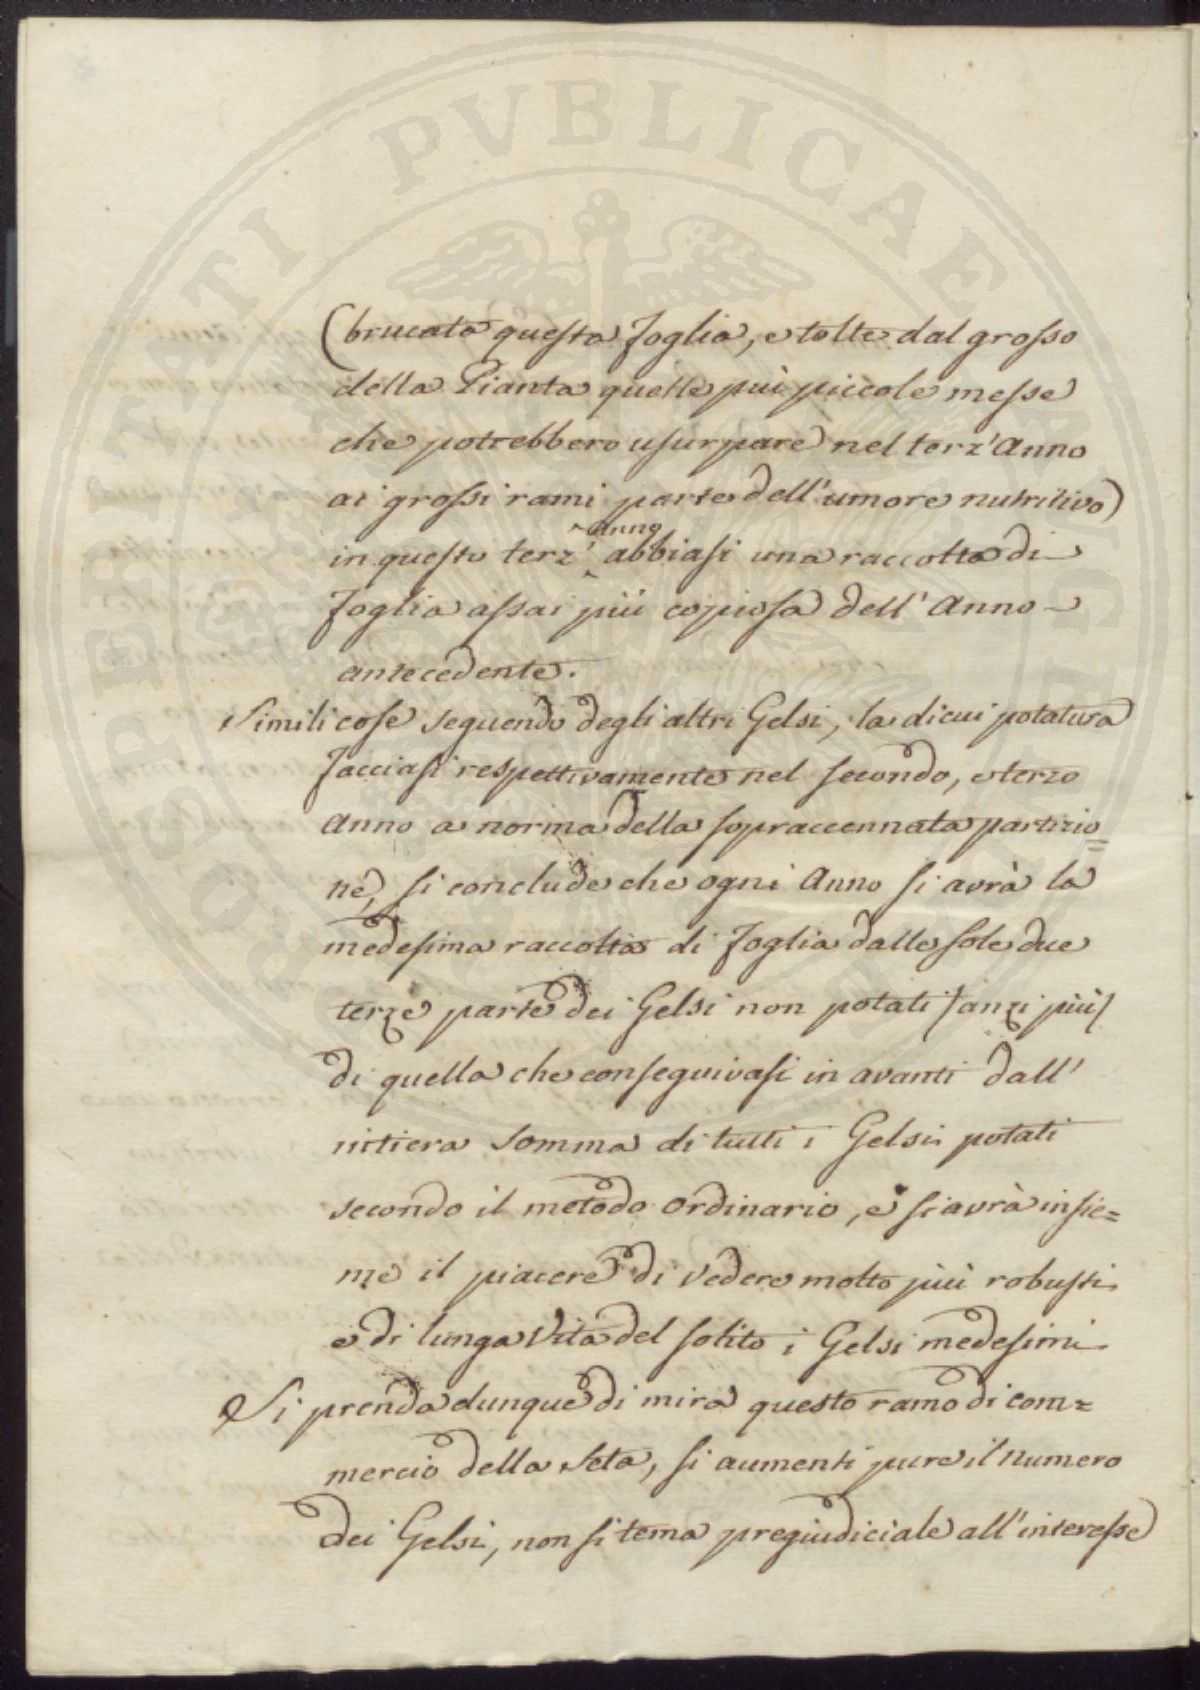 (brucata questa foglia, e tolte dal grosso
della Pianta quelle più piccole messe
che potrebbero usurpare nel terz'Anno
ai grossi rami parte dell'umore nutritivo)
in questo terz' Anno abbiasi una raccolta di
foglia assai più copiosa dell'Anno
antecedente.
Simili cose seguendo degli altri Gelsi, la di cui potatura
facciasi respettivamente nel secondo, e terzo
Anno a norma della sopraccennata partizio=
ne, si conclude che ogni Anno si avrà la
medesima raccolta di foglia dalle sole due
terze parte dei Gelsi non potati /anzi più/
di quella che conseguivasi in avanti dall'
intiera somma di tutti i Gelsi potati
secondo il metodo ordinario, e si avrà insie=
me il piacere di vedere molto più robusti
e di lunga vita del solito i Gelsi medesimi
Si prenda dunque di mira questo ramo di com=
mercio della Seta, si aumenti pure il numero
dei Gelsi, non si tema pregiudiciale all'interesse
PROSPERITATI PVBLICAE AVGENDAE